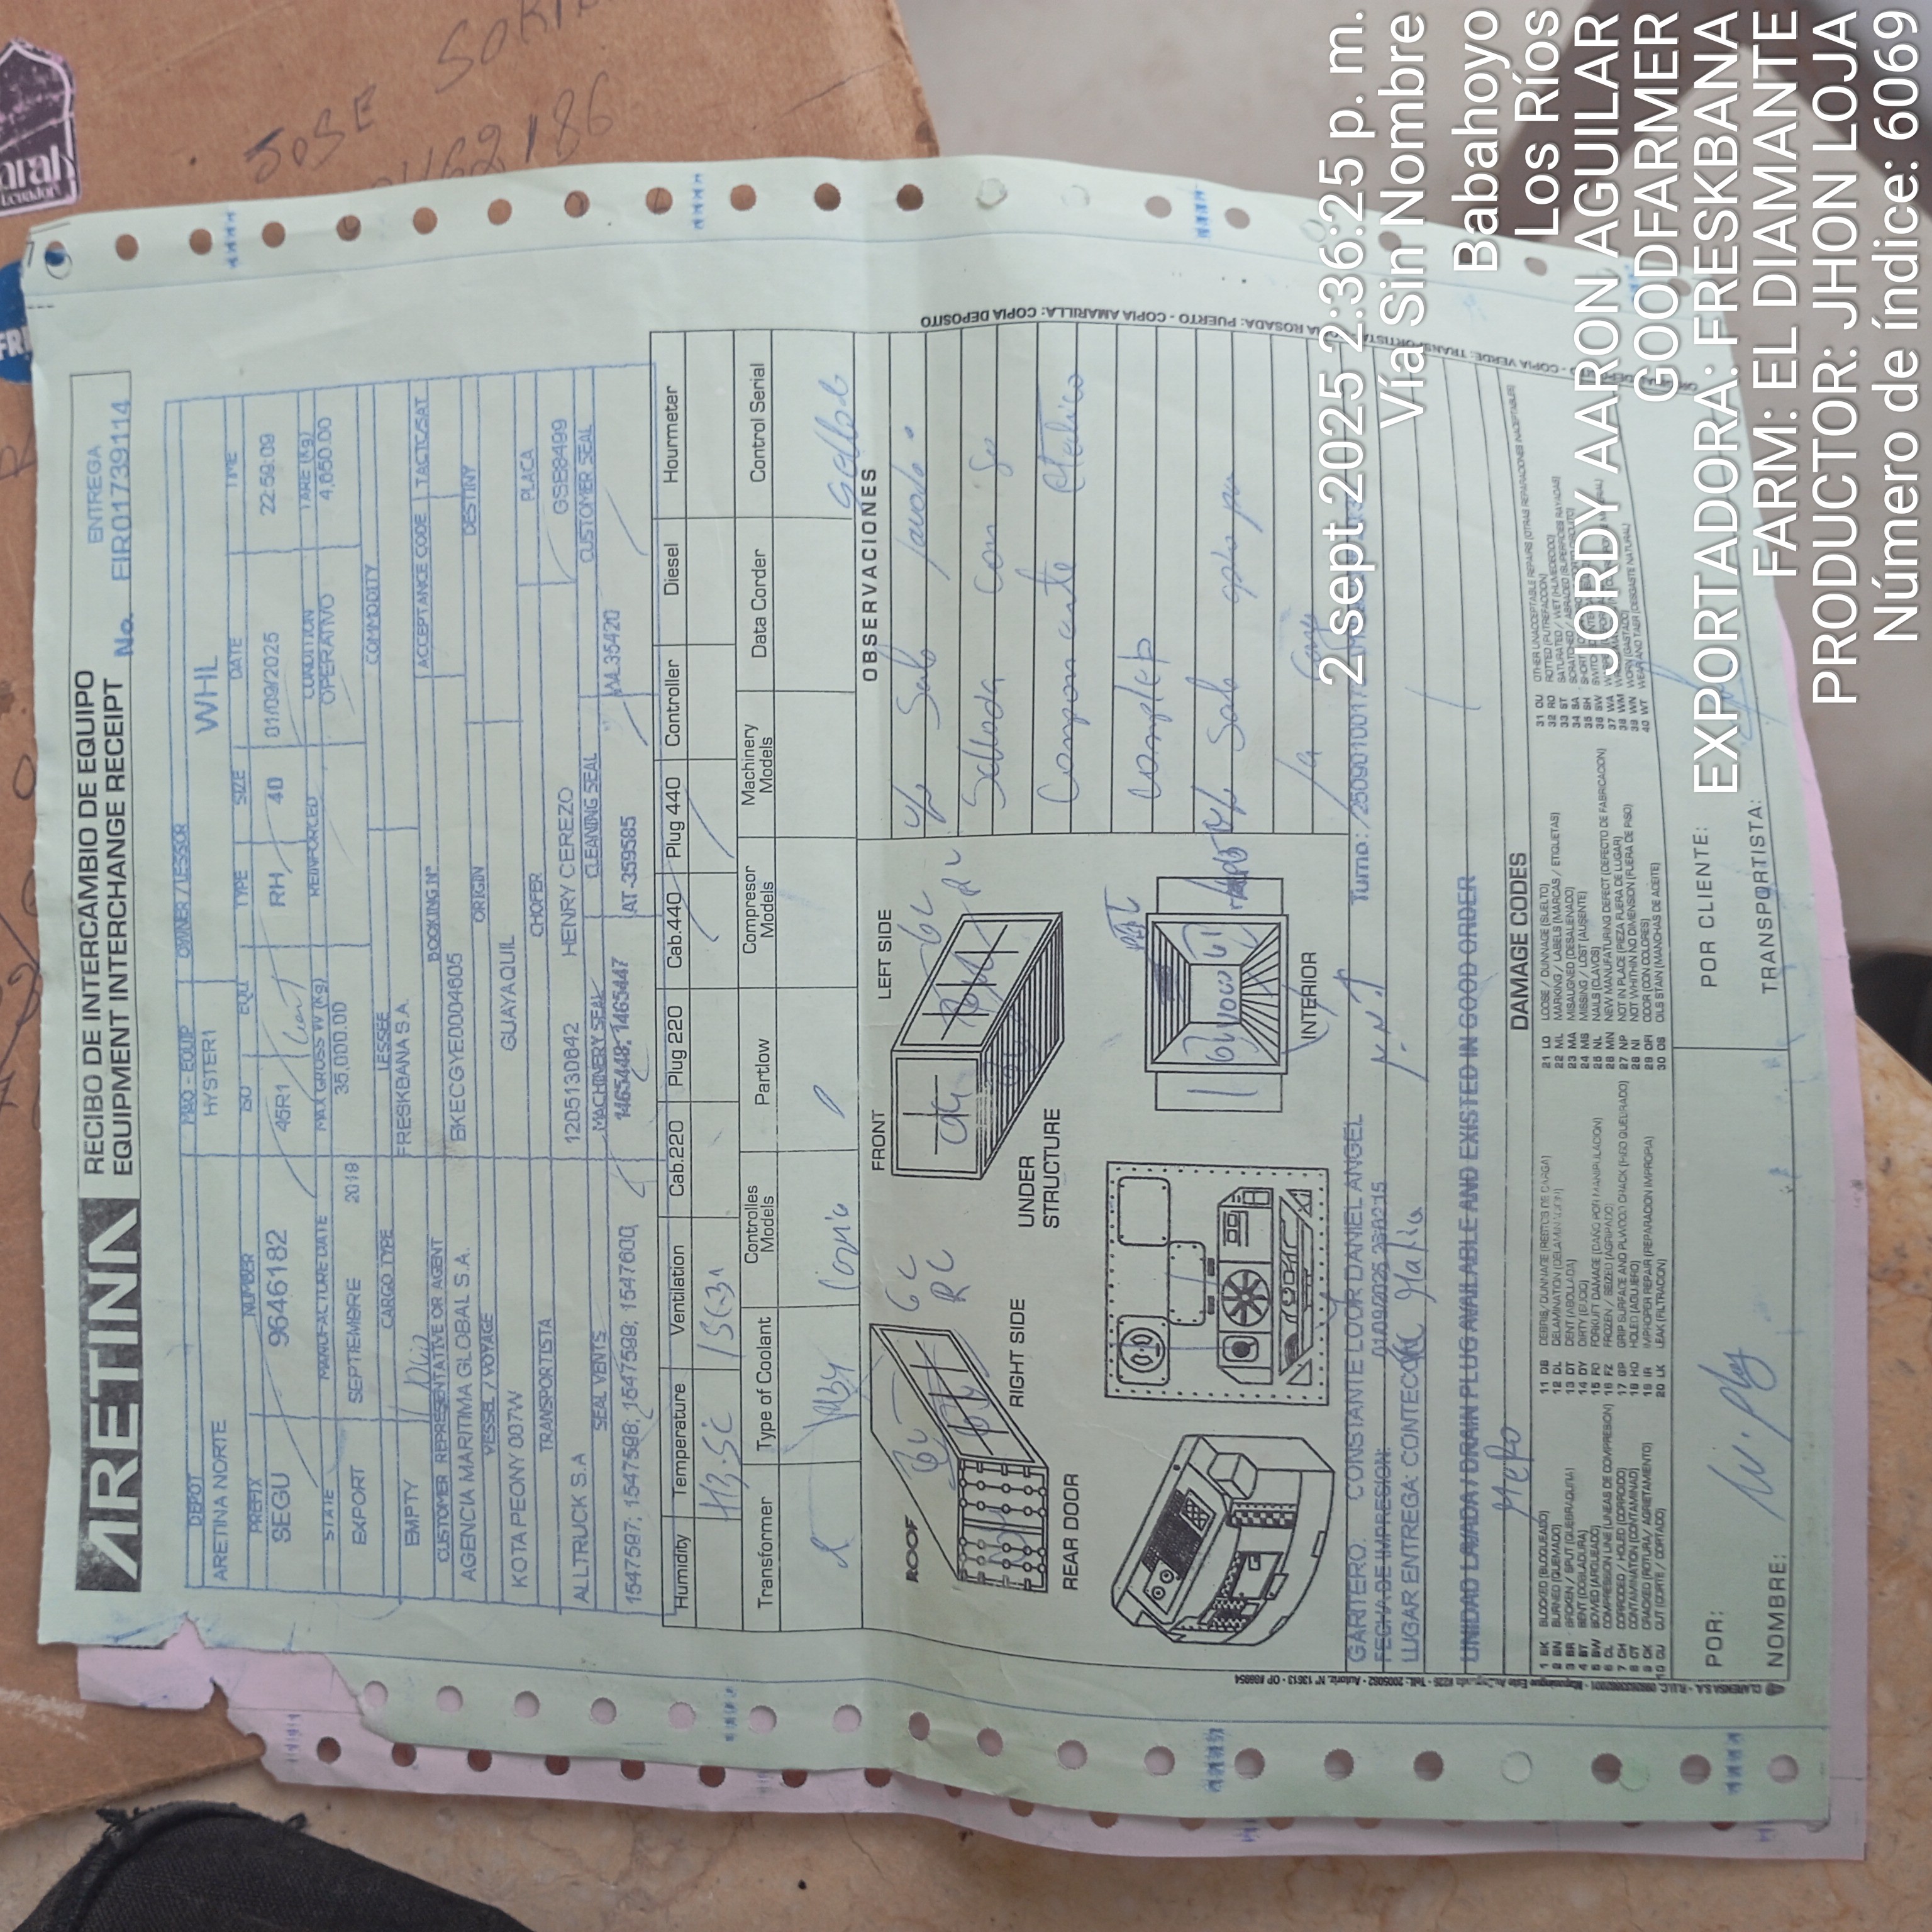 ARETINA
RECIBO DE INTERCAMBIO DE EQUIPO
EQUIPMENT INTERCHANGE RECEIPT
ENTREGA
No. EIR01739114
DEPOT MAQ - EQUIP OWNER / LESSOR
ARETINA NORTE HYSTER1 WHL
PREFIX NUMBER ISO EQU. TYPE SIZE DATE TIME
SEGU 9646182 45R1 RH 40 01/09/2025 22:59:09
STATE MANUFACTURE DATE MAX GROSS W (Kg) REINFORCED CONDITION TARE (Kg)
EXPORT SEPTIEMBRE 2018 35,000.00 OPERATIVO 4,650.00
CARGO TYPE LESSEE COMMODITY
EMPTY FRESKBANA S.A.
CUSTOMER REPRESENTATIVE OR AGENT BOOKING Nº ACCEPTANCE CODE TACTC/SAT
AGENCIA MARITIMA GLOBAL S.A. BKECGYE0004605
VESSEL / VOYAGE ORIGIN DESTINY
KOTA PEONY 007W GUAYAQUIL
TRANSPORTISTA CHOFER PLACA
ALLTRUCK S.A 1205130642 HENRY CEREZO GSE8499
SEAL VENTS MACHINERY SEAL CLEANING SEAL CUSTOMER SEAL
1547597; 1547598; 1547599; 1547600; 1465448; 1465447 AT-359585 AA.35420
Humidity Temperature Ventilation Cab.220 Plug 220 Cab.440 Plug 440 Controller Diesel Hourmeter
Transformer Type of Coolant Controlles Models Partlow Compresor Models Machinery Models Data Corder Control Serial
OBSERVACIONES
ROOF
6L
RC
RIGHT SIDE
REAR DOOR
FRONT
LEFT SIDE
UNDER STRUCTURE
INTERIOR
Sale lavado
Sellada con
Componente
Completo
Sale
la
GARITERO: CONSTANTE LOOR DANIEL ANGEL Turno:
FECHA DE IMPRESION: 01/09/2025 23:02:15
LUGAR ENTREGA: CONTECON
UNIDAD LAVADA / DRAIN PLUG AVAILABLE AND EXISTED IN GOOD ORDER
DAMAGE CODES
1 BK BLOCKED (BLOQUEADO)
2 BN BURNED (QUEMADO)
3 BR BROKEN / SPLIT (QUEBRADURA)
4 BT BENT (DOBLADURA)
5 BW BOWED (ARQUEADO)
6 CL COMPRESSION LINE (LINEAS DE COMPRESION)
7 CH CORRODED / HOLED (CORROIDO)
8 CT CONTAMINATION (CONTAMINAD)
9 CK CRACKED (ROTURA / AGRIETAMIENTO)
10 CU CUT (CORTE / CORTADO)
11 DB DEBRIS/DUNNAGE (RESTOS DE CARGA)
12 DL DELAMINATION (DELAMINACION)
13 DT DENT (ABOLLADA)
14 DY DIRTY (SUCIO)
15 FD FORKLIFT DAMAGE (DAÑO POR MANIPULACION)
16 FZ FROZEN / SEIZED (AGRIPADO)
17 GP GRIP SURFACE AND PLYWOOD CRACK (PISO QUEBRADO)
18 HO HOLED (AGUJERO)
19 IR IMPROPER REPAIR (REPARACION IMPROPIA)
20 LK LEAK (FILTRACION)
21 LO LOOSE / DUNNAGE (SUELTO)
22 ML MARKING / LABELS (MARCAS / ETIQUETAS)
23 MA MISALIGNED (DESALIENADO)
24 MS MISSING / LOST (AUSENTE)
25 NL NAILS (CLAVOS)
26 MN NEW MANUFATURING DEFECT (DEFECTO DE FABRICACION)
27 NP NOT IN PLACE (PIEZA FUERA DE LUGAR)
28 NI NOT WHITHIN NO DIMENSION (FUERA DE PISO)
29 OR ODOR (CON COLORES)
30 OS OILS STAIN (MANCHAS DE ACEITE)
31 OU OTHER UNACCEPTABLE REPAIRS (OTRAS REPARACIONES INACEPTABLES)
32 RO ROTTED (PUTREFACCION)
33 ST SATURATED / WET (HUMEDECIDO)
34 SA SCRATCHED / ABRADED (SUPERFICIES RAYADAS)
39 WN WORN (GASTADO)
40 WT WEAR AND TAER (DESGASTE NATURAL)
POR:
NOMBRE:
POR CLIENTE:
TRANSPORTISTA:
2 sept 2025 2:36:25 p. m.
Vía Sin Nombre
Babahoyo
Los Ríos
JORDY AARON AGUILAR
GOODFARMER
EXPORTADORA: FRESKBANA
FARM: EL DIAMANTE
PRODUCTOR: JHON LOJA
Número de índice: 6069